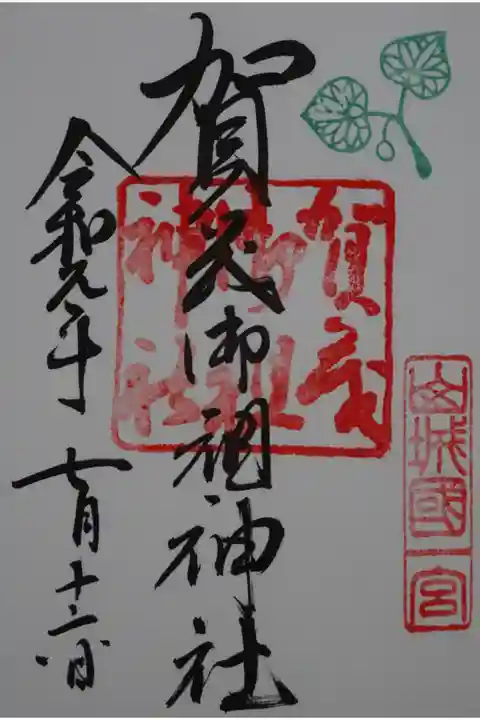 山城國一宮
賀茂御祖神社
賀茂
御祖
神社
令和元年七月十二日